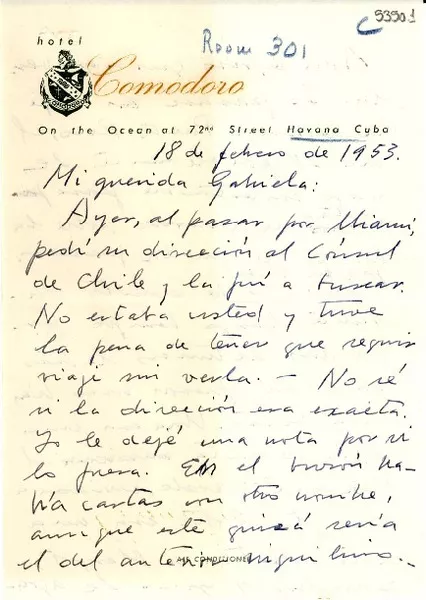 53501
Room 301
hotel
Comodoro
On the Ocean at 72nd Street Havana Cuba
18 de febrero de 1953.
Mi querida Gabriela:
Ayer, al pasar por Miami,
pedí su dirección al Cónsul
de Chile y la fuí a buscar.
No estaba usted y tuve
la pena de tener que seguir
viaje sin verla. — No sé
si la dirección era exacta.
Yo le dejé una nota por si
lo fuera. En el buzón ha-
bía cartas con otro nombre,
aunque éste quizá sería
el del anterior inquilino. -
AIR CONDITIONED